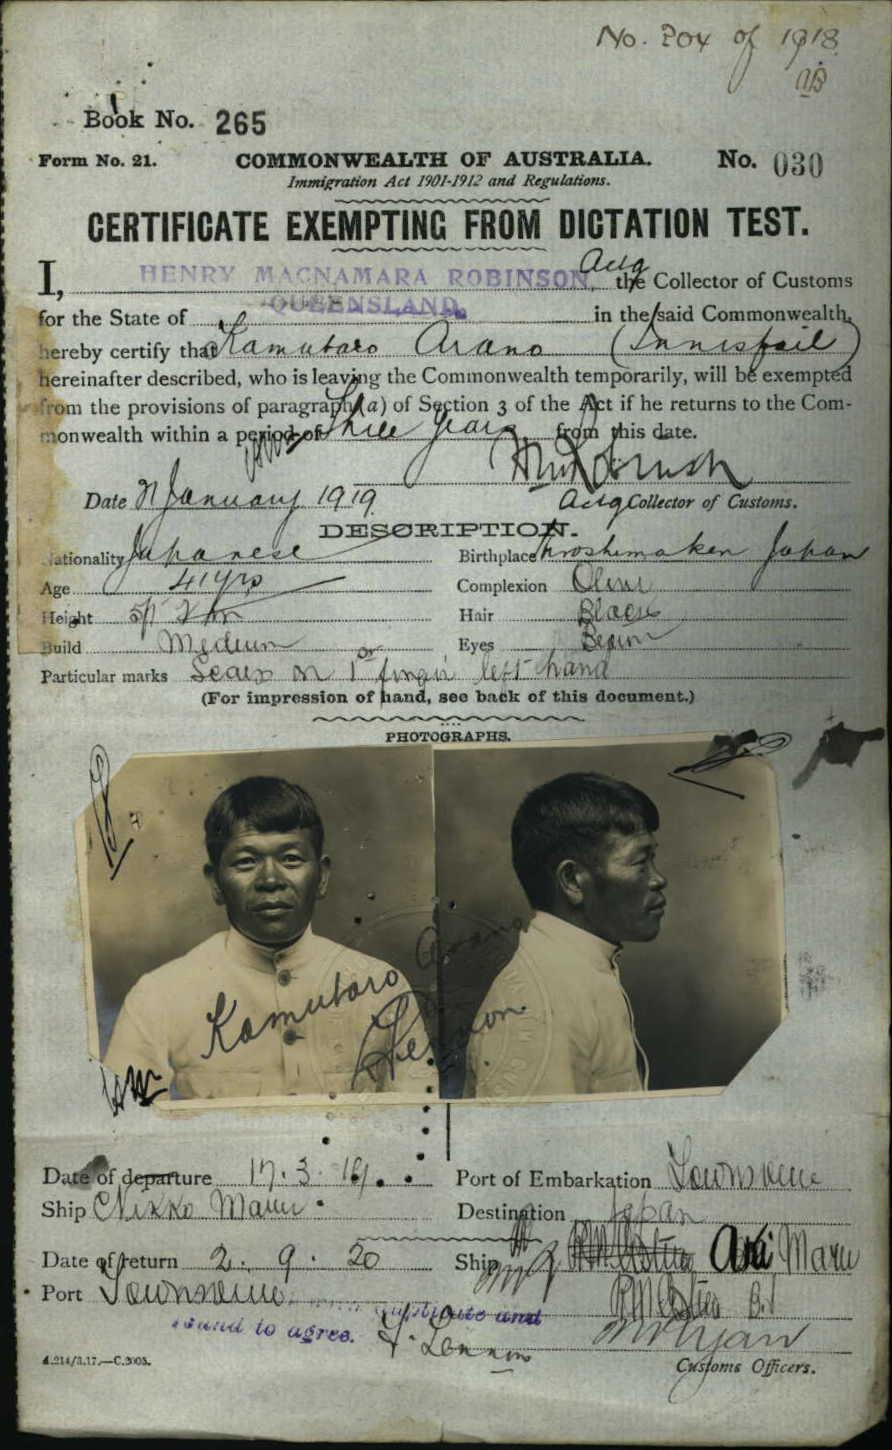 No. 704 of 1918
Book No. 265
Form No. 21. COMMONWEALTH OF AUSTRALIA. No. 030
Immigration Act 1901-1912 and Regulations.
CERTIFICATE EXEMPTING FROM DICTATION TEST.
I, HENRY MACNAMARA ROBINSON, Actg the Collector of Customs
for the State of QUEENSLAND. in the said Commonwealth,
hereby certify that Kamutaro Arano (Innisfail)
hereinafter described, who is leaving the Commonwealth temporarily, will be exempted
from the provisions of paragraph (a) of Section 3 of the Act if he returns to the Com-
monwealth within a period of Three Years from this date.
Date 21 January 1919 Actg Collector of Customs.
DESCRIPTION.
Nationality Japanese Birthplace Hiroshima ken Japan
Age 41 yrs Complexion Olive
Height 5ft Hair Black
Build Medium Eyes Brown
Particular marks Scars on 1st finger left hand
(For impression of hand, see back of this document.)
PHOTOGRAPHS.
Kamutaro Arano
Lennon
Date of departure 17.3.19. Port of Embarkation Townsville
Ship Nikko Maru Destination Japan
Date of return 2. 9. 20 Ship Aki Maru
Port Townsville
duplicate and
found to agree. Lennon
Ryan
4.214/3.17.—C.2005. Customs Officers.